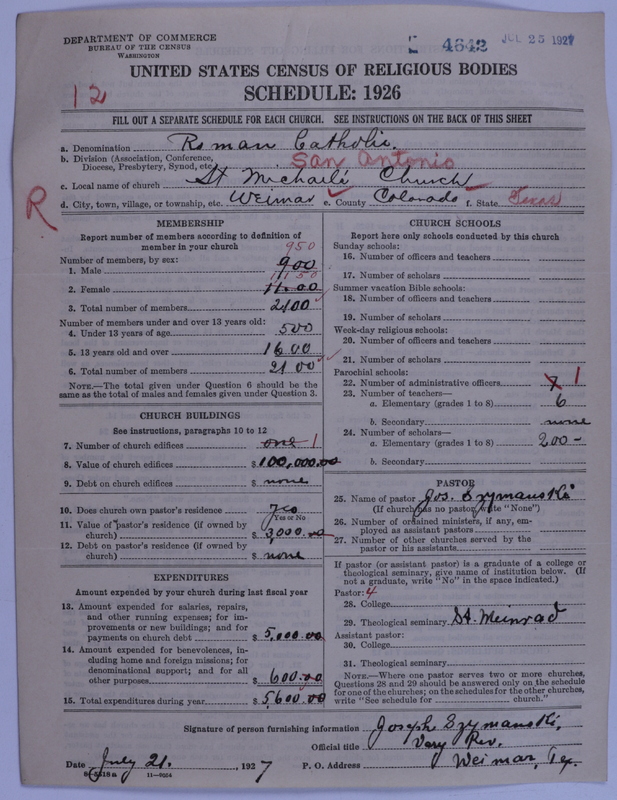 DEPARTMENT OF COMMERCE
BUREAU OF THE CENSUS
WASHINGTON
4642
JUL 25 1927
UNITED STATES CENSUS OF RELIGIOUS BODIES
12
SCHEDULE: 1926
FILL OUT A SEPARATE SCHEDULE FOR EACH CHURCH. SEE INSTRUCTIONS ON THE BACK OF THIS SHEET
a. Denomination Roman Catholic.
b. Division (Association, Conference, Diocese, Presbytery, Synod, etc.) San Antonio
c. Local name of church St Michael's Church
d. City, town, village, or township, etc. Weimar e. County Colorado f. State Texas
R
MEMBERSHIP
Report number of members according to definition of
member in your church
950
Number of members, by sex:
1. Male 900
1150
2. Female 1100
3. Total number of members 2100
Number of members under and over 13 years old:
4. Under 13 years of age 500
5. 13 years old and over 1600
6. Total number of members 2100
NOTE.—The total given under Question 6 should be the
same as the total of males and females given under Question 3.
CHURCH BUILDINGS
See instructions, paragraphs 10 to 12
7. Number of church edifices one 1
8. Value of church edifices $ 100,000.00
9. Debt on church edifices $ none
10. Does church own pastor's residence? yes
Yes or No
11. Value of pastor's residence (if owned by
church) $ 3,000.00
12. Debt on pastor's residence (if owned by
church) $ none
EXPENDITURES
Amount expended by your church during last fiscal year
13. Amount expended for salaries, repairs,
and other running expenses; for im-
provements or new buildings; and for
payments on church debt $ 5,000.00
14. Amount expended for benevolences, in-
cluding home and foreign missions; for
denominational support; and for all
other purposes $ 600.00
15. Total expenditures during year $ 5,600.00
CHURCH SCHOOLS
Report here only schools conducted by this church
Sunday schools:
16. Number of officers and teachers
17. Number of scholars
Summer vacation Bible schools:
18. Number of officers and teachers
19. Number of scholars
Week-day religious schools:
20. Number of officers and teachers
21. Number of scholars
Parochial schools:
22. Number of administrative officers 7 1
23. Number of teachers—
a. Elementary (grades 1 to 8) 6
b. Secondary none
24. Number of scholars—
a. Elementary (grades 1 to 8) 200 -
b. Secondary
PASTOR
25. Name of pastor Jos. Szymanski
(If church has no pastor, write "None")
26. Number of ordained ministers, if any, em-
ployed as assistant pastors
27. Number of other churches served by the
pastor or his assistants
If pastor (or assistant pastor) is a graduate of a college or
theological seminary, give name of institution below. (If
not a graduate, write "No" in the space indicated.)
Pastor: 4
28. College
29. Theological seminary St. Meinrad
Assistant pastor:
30. College
31. Theological seminary
NOTE.—Where one pastor serves two or more churches,
Questions 28 and 29 should be answered only on the schedule
for one of the churches; on the schedules for the other churches,
write "See schedule for church."
Signature of person furnishing information Joseph Szymanski,
Official title Very Rev.
Date July 21. , 1927 P. O. Address Weimar, Tex.
11-9054